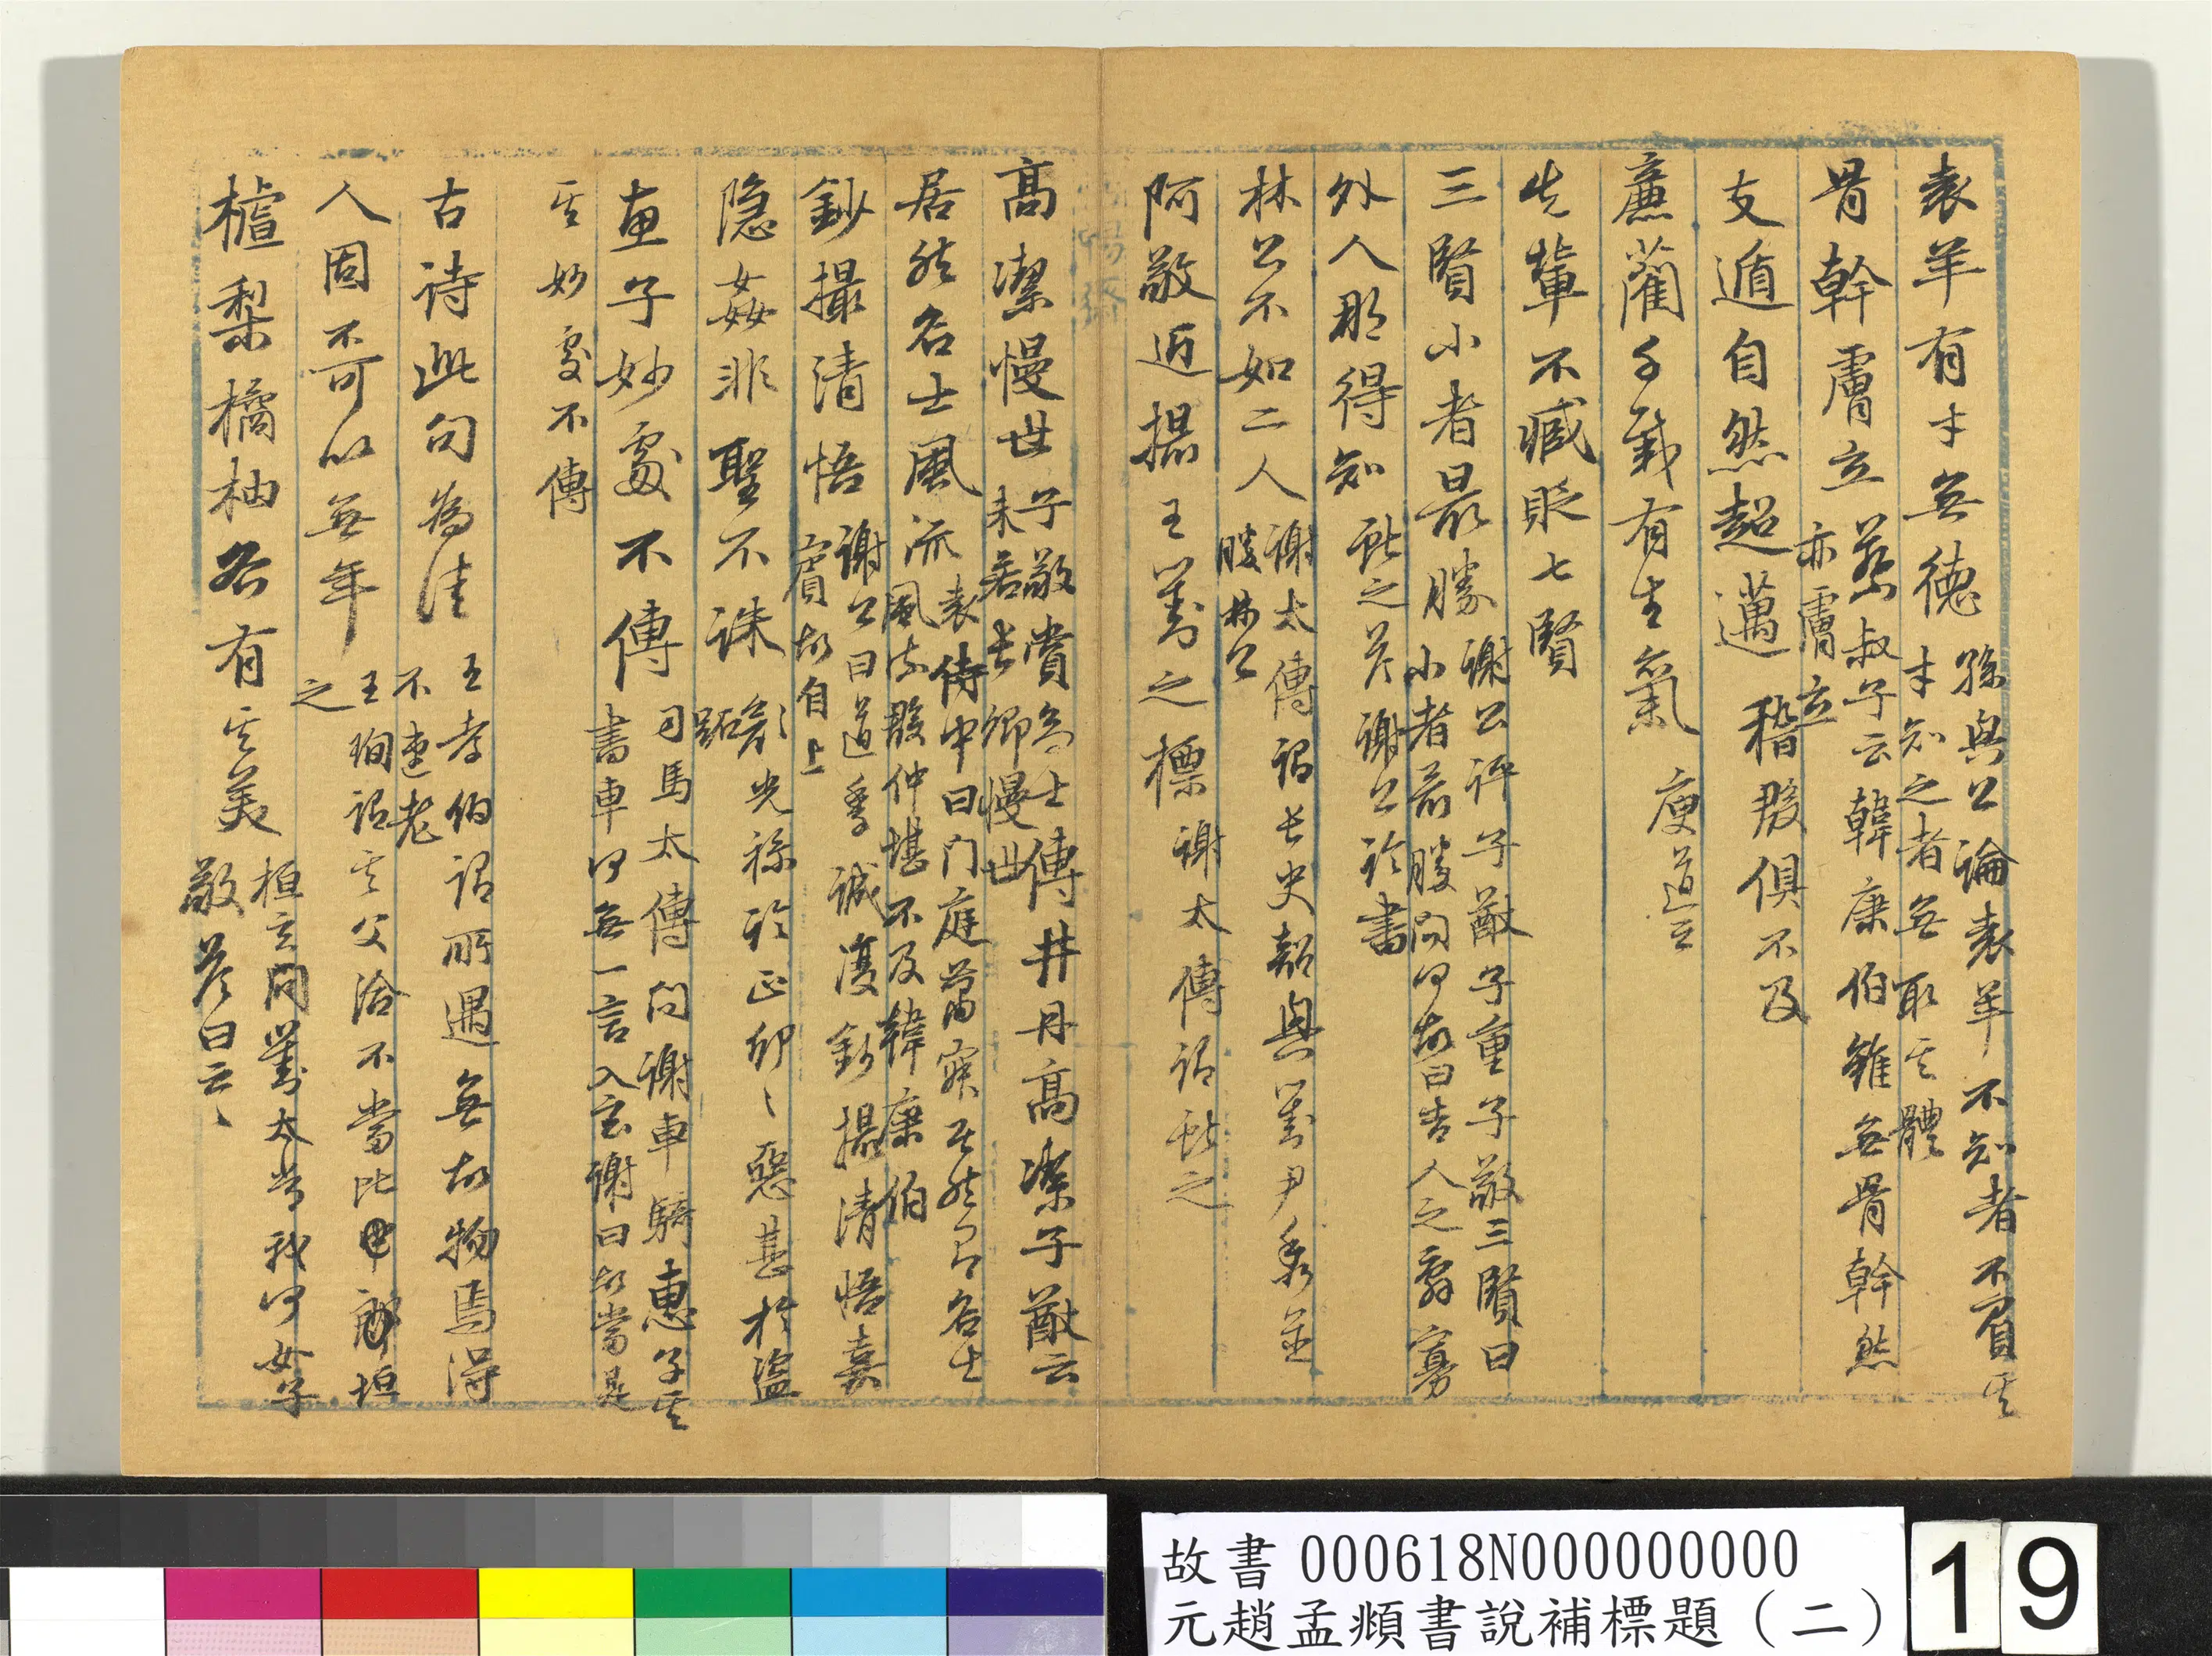 袁羊有才無德 孫興公論袁羊不知者不負其
才知之者無取其體
骨幹膚立 蔡叔子云韓康伯雖無骨幹然
亦膚立
支遁自然超邁 稽殷俱不及
廉藺千載有生氣 庾道正
先輩不臧貶七賢
三賢小者最勝 謝公評子猷子重子敬三賢曰
小者最勝問何故曰吉人之辭寡
外人那得知 獻之答謝公論書
林公不如二人 謝太傅謂長史韶興劉尹秀並
勝林公
阿敬近撮王劉之標 謝太傅謂獻之
高潔慢世 子敬賞高士傅井丹高潔子猷云
未若長卿慢世
居然名士風流 袁侍中曰門庭蕭寂居然有名士
風流殷仲堪不及韓康伯
鈔撮清悟 謝公曰道季誠復鈔撮清悟嘉
賓故自上
隱姦非聖不誅 光祿論正卯正卯惡甚於盜
跖
惠子妙處不傳 司馬太傅問謝車騎惠子其
書車何無一言入玄謝曰故當是
其妙處不傳
古詩此句為佳 王孝伯謂所遇無故物焉得
不速老
人固不可以無年 王珣謂其父洽不當比郗坦
之
樝梨橘柚各有其美 桓玄問劉太常我何如子
敬答曰云云
故書000618N000000000
元趙孟頫書說補標題（二）
19